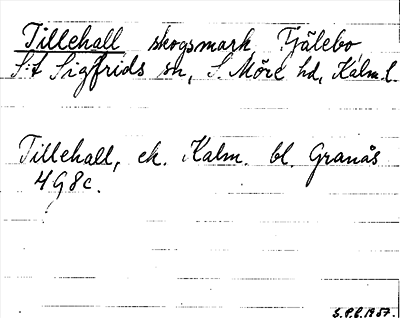 Tillehall skogsmark, Tjälebo,
S:t Sigfrids sn, S. Möre hd, Kalm. l.
Tillehall, ek. Kalm. bl. Granås
4G8c.
S.P.B. 1957.